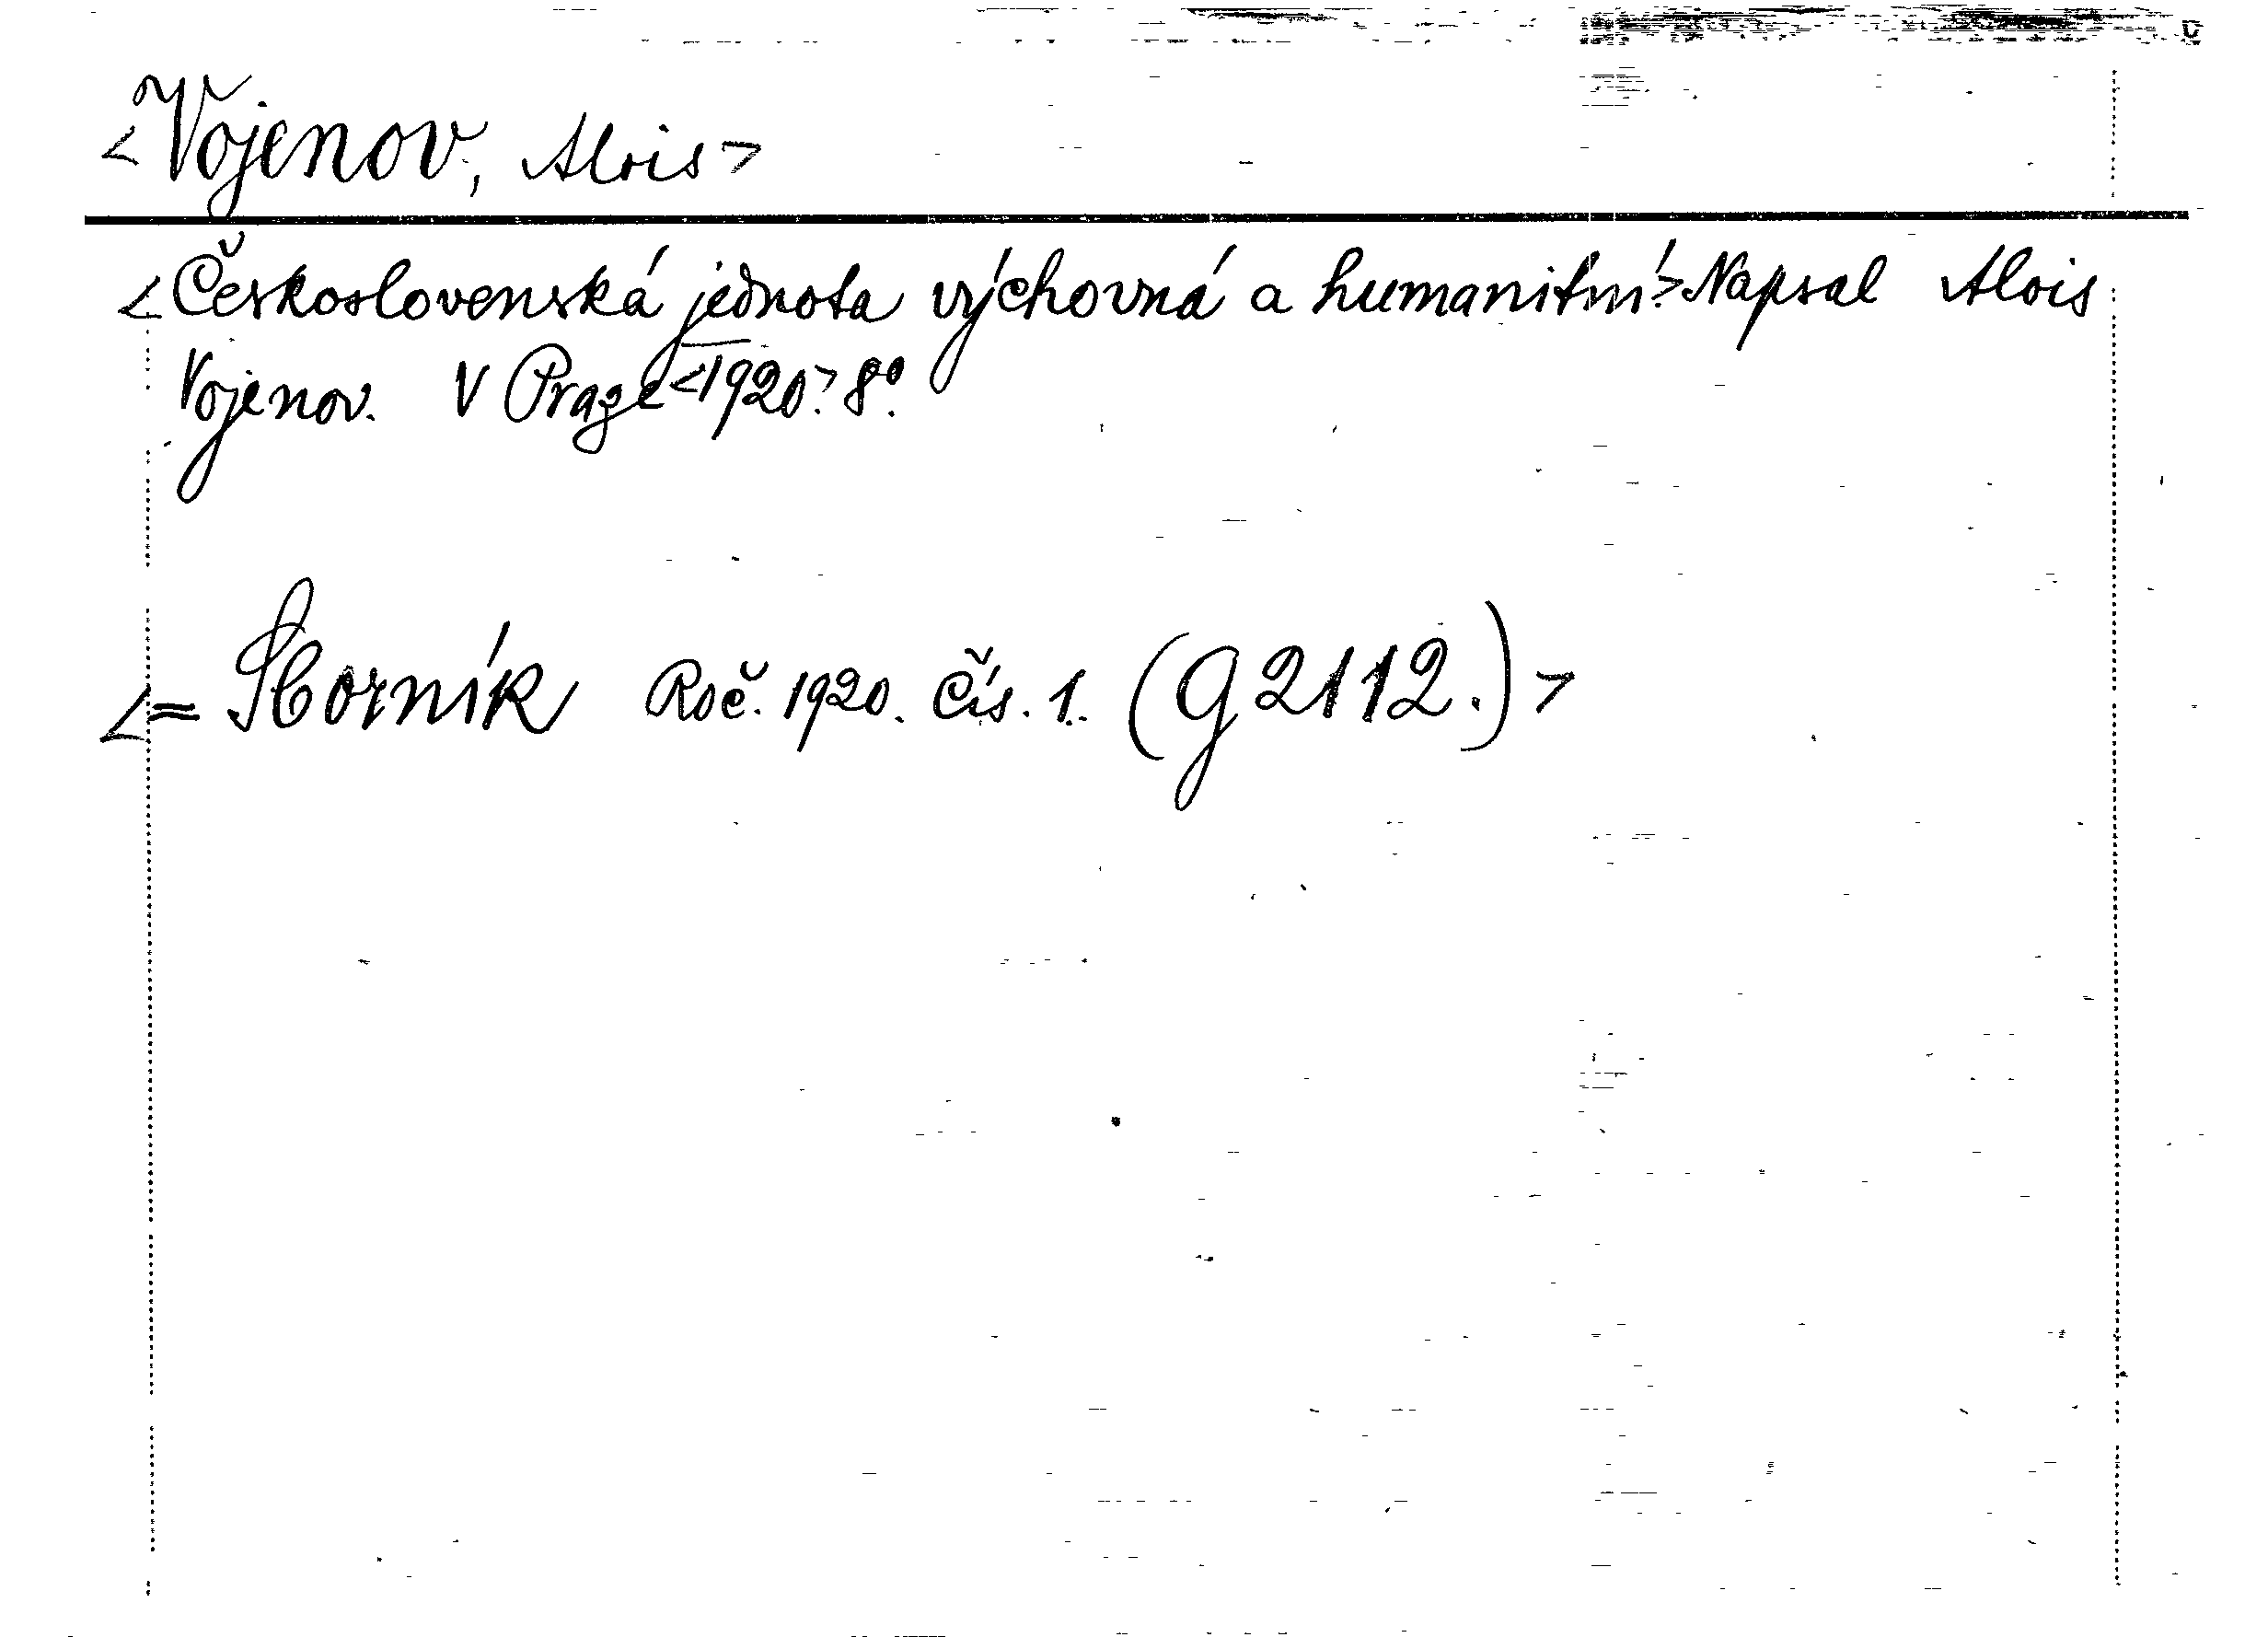 <Vojenov, Alois>
<Československá jednota výchovná a humanitní.> Napsal Alois
Vojenov. V Praze <1920>. 8°.
<= Sborník Roč. 1920. Čís. 1. (G 2112.)>